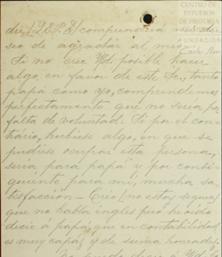 CENTRO DE
ESTUDIOS
DE
de agradar al mio.
Si no cree Ud posible hacer
algo, en favor de este Sr., tanto
papá como yo, comprendemos
perfectamente que no sería por
falta de voluntad. Si por el con-
trario, hubiese algo, en que se
pudiese ocupar esta persona,
sería para papá y por consi-
guiente para mi, mucha sa-
tisfacción — Creo (no estoy segura)
que no habla inglés pero he oido
decir a papá, que en contabilidad,
es muy capaz y de suma honradez